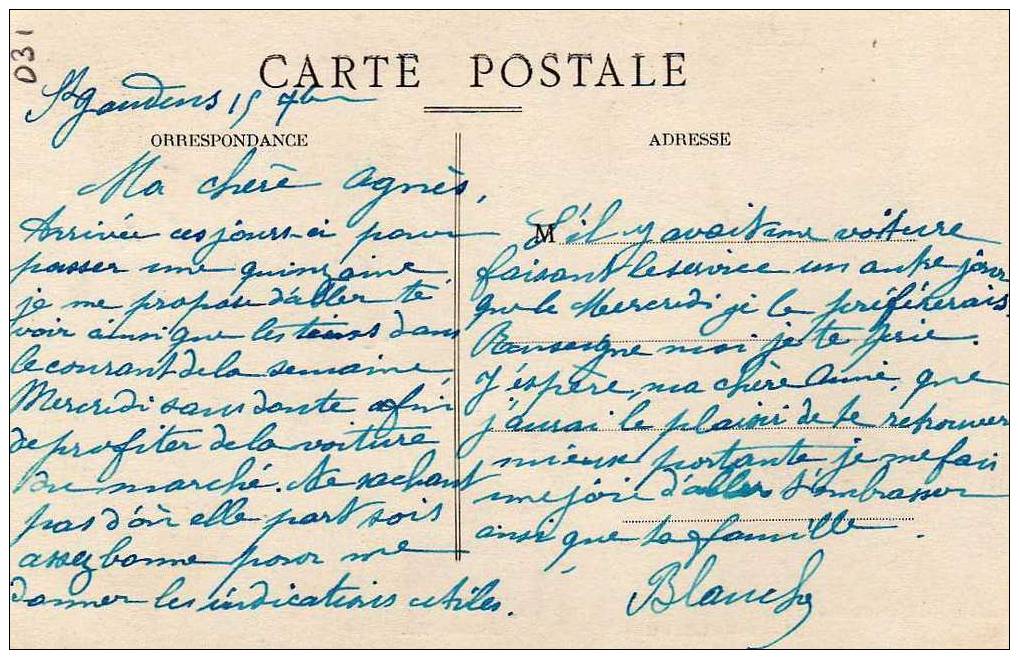 031
CARTE POSTALE
St Gaudens 15 7bre
ORRESPONDANCE
ADRESSE
Ma chère Agnès,
Arrivée ces jours-ci pour
passer une quinzaine
je me propose d'aller te
voir ainsi que les tiens dans
le courant de la semaine,
Mercredi sans doute afin
de profiter de la voiture
du marché. Ne sachant
pas d'où elle part sois
assez bonne pour me
donner les indications utiles.
M
S'il y avait une voiture
faisant le service un autre jour
que le Mercredi je le préférerais.
Renseigne moi je te prie.
J'espère, ma chère Amie, que
j'aurai le plaisir de te retrouver
mieux portante je me fais
une joie d'aller t'embrasser
ainsi que ta famille.
Blanche